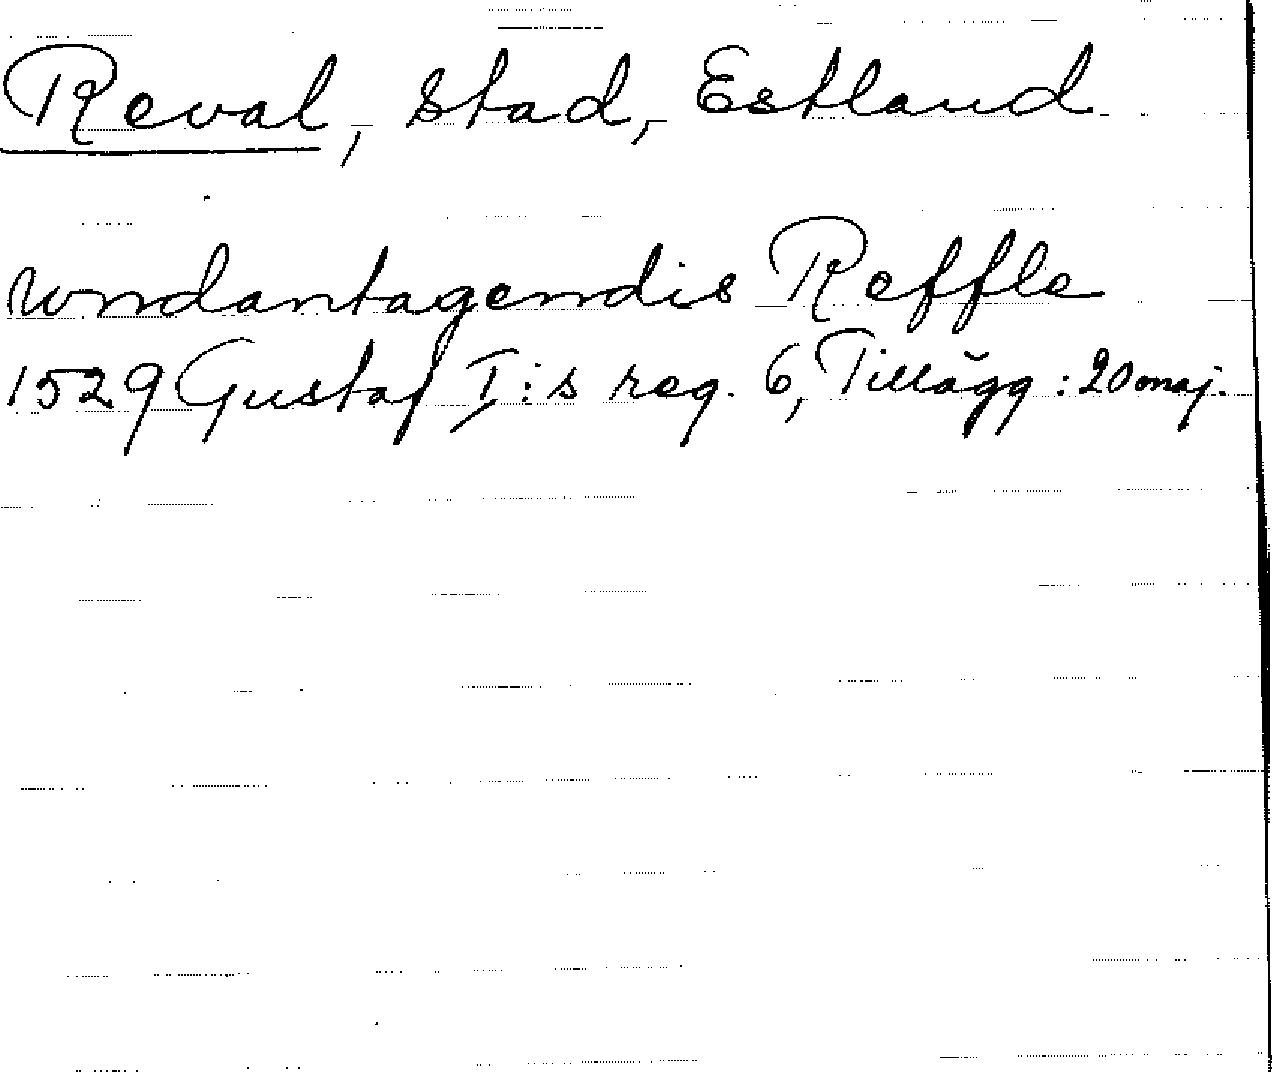 Reval, stad, Estland
wndantagendis Reffle
1529 Gustaf I:s reg. 6, Tillägg: 20 maj.